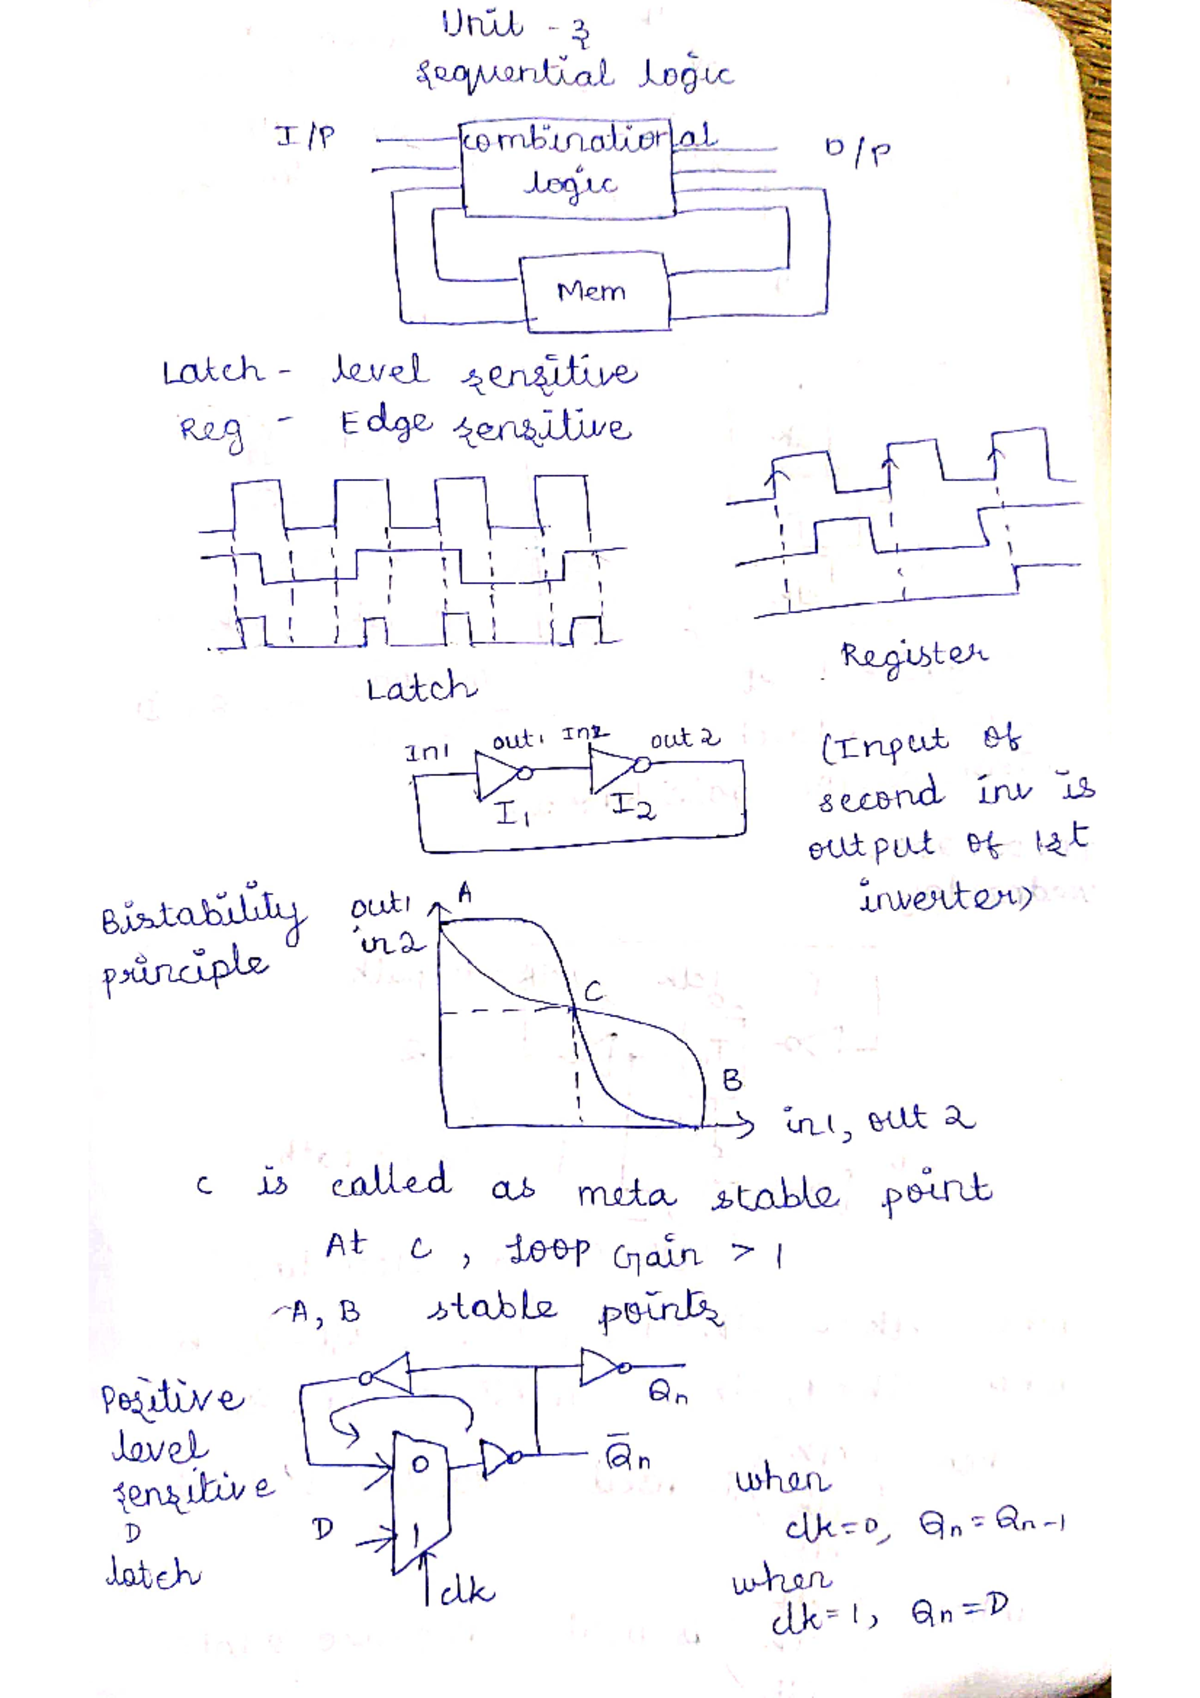 Unit - 3
Sequential logic
I/P
combinational
O/P
logic
Mem
Latch - level sensitive
Reg - Edge sensitive
Register
Latch
In1 out1 In2 out 2
I1 I2
(Input of
second inv is
output of 1st
inverter)
Bistability
principle
out1
in2
A
C
B
in1, out 2
C is called as meta stable point
At C, Loop Gain > 1
A, B stable points
Positive
level
sensitive
D
latch
Qn
Q̅n
0
D
1
clk
when
clk=0, Qn=Qn-1
when
clk=1, Qn=D